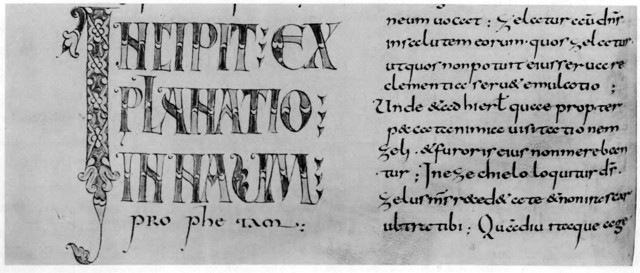 INCIPIT: EX
PLANATIO:
IN NAUM:
pro phe tam;
neum uocet; Zelatur dns
in salutem eorum. quos zelatur.
ut quos non potuit eius seruare
clementia seru& emulatio;
Unde & ad hierl quae propter
peccata nimia uisitationem
zeli. & furoris eius non mereban
tur; In ezechielo loquitur ds.
Zelus ms reced& a te & non irascar
ultra tibi; Quamdiu itaque ege